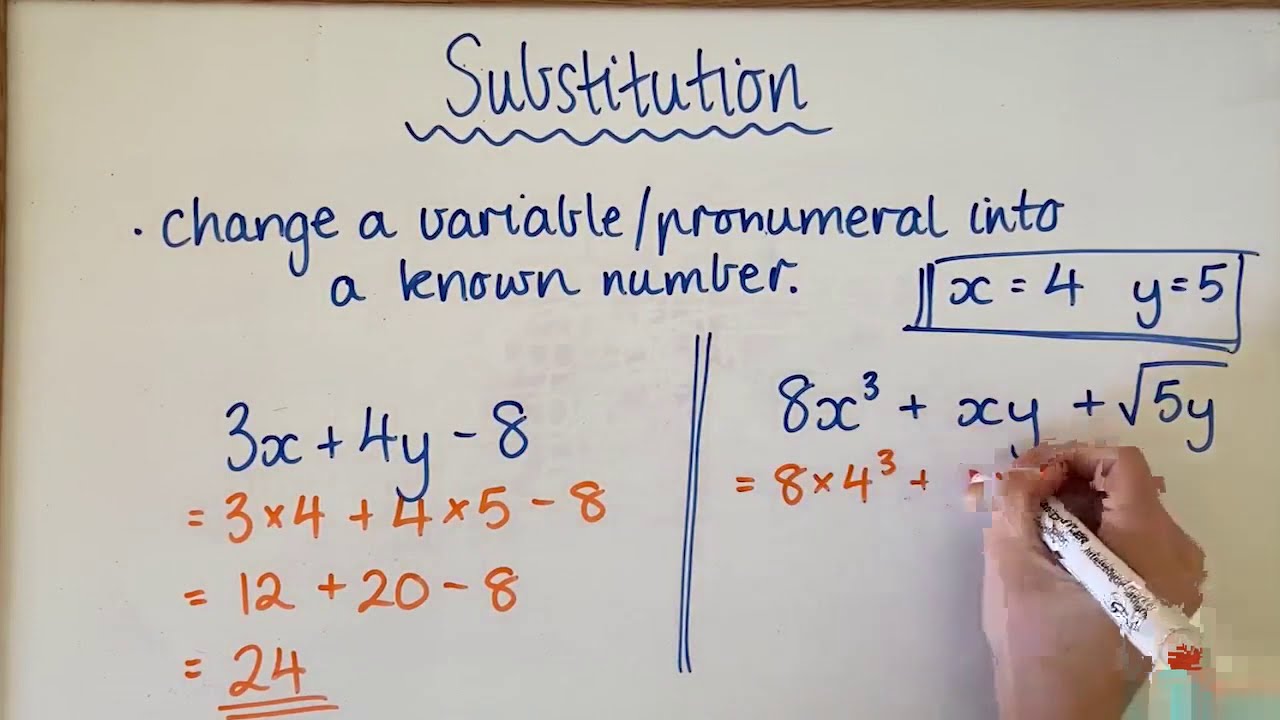 Substitution
· change a variable/pronumeral into
a known number.
x = 4 y = 5
3x + 4y - 8
= 3 × 4 + 4 × 5 - 8
= 12 + 20 - 8
= 24
8x³ + xy + √5y
= 8 × 4³ +